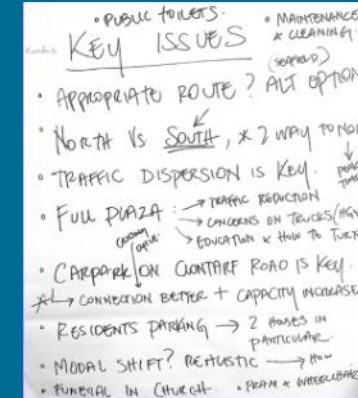 • PUBLIC TOILETS.
• MAINTENANCE
& CLEANING.
KEY ISSUES
(SEAFIELD)
• APPROPRIATE ROUTE? ALT OPTION
• NORTH VS SOUTH, * 2 WAY TO NOR
• TRAFFIC DISPERSION IS KEY.
• FULL PLAZA: → TRAFFIC REDUCTION
→ CONCERNS ON TRUCKS/HGV
→ EDUCATION & HOW TO TURN
• CARPARK ON CLONTARF ROAD IS KEY.
* ↳ CONNECTION BETTER + CAPACITY INCREASE
• RESIDENTS PARKING → 2 HOUSES IN
PARTICULAR.
• MODAL SHIFT? REALISTIC → HOW
• FUNERAL IN CHURCH. • PRAM & WHEELCHAIR